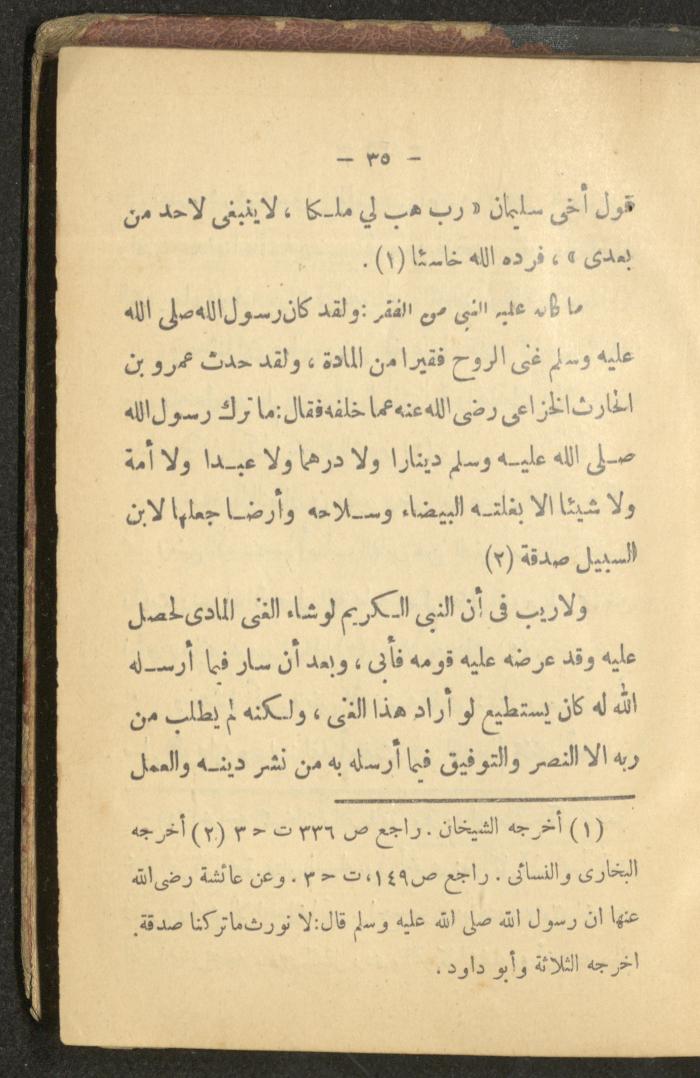 — ٣٥ —
قول أخى سليمان « رب هب لي ملكا ، لاينبغى لاحد من
بعدى » ، فرده الله خاسئا (١) .
ما كان عليه النبى من الفقر : ولقد كان رسول الله صلى الله
عليه وسلم غنى الروح فقيرا من المادة ، ولقد حدث عمرو بن
الحارث الخزاعى رضى الله عنه عما خلفه فقال : ما ترك رسول الله
صلى الله عليه وسلم دينارا ولا درهما ولا عبدا ولا أمة
ولا شيئا الا بغلته البيضاء وسلاحه وأرضا جعلها لابن
السبيل صدقة (٢)
ولاريب فى أن النبى الكريم لو شاء الغنى المادى لحصل
عليه وقد عرضه عليه قومه فأبى ، وبعد أن سار فيما أرسله
الله له كان يستطيع لو أراد هذا الغنى ، ولكنه لم يطلب من
ربه الا النصر والتوفيق فيما أرسله به من نشر دينه والعمل
(١) أخرجه الشيخان . راجع ص ٣٣٦ ت ح ٣ (٢) أخرجه
البخارى والنسائى . راجع ص ١٤٩، ت ح ٣ . وعن عائشة رضى الله
عنها ان رسول الله صلى الله عليه وسلم قال : لا نورث ماتركنا صدقة .
اخرجه الثلاثة وأبو داود .